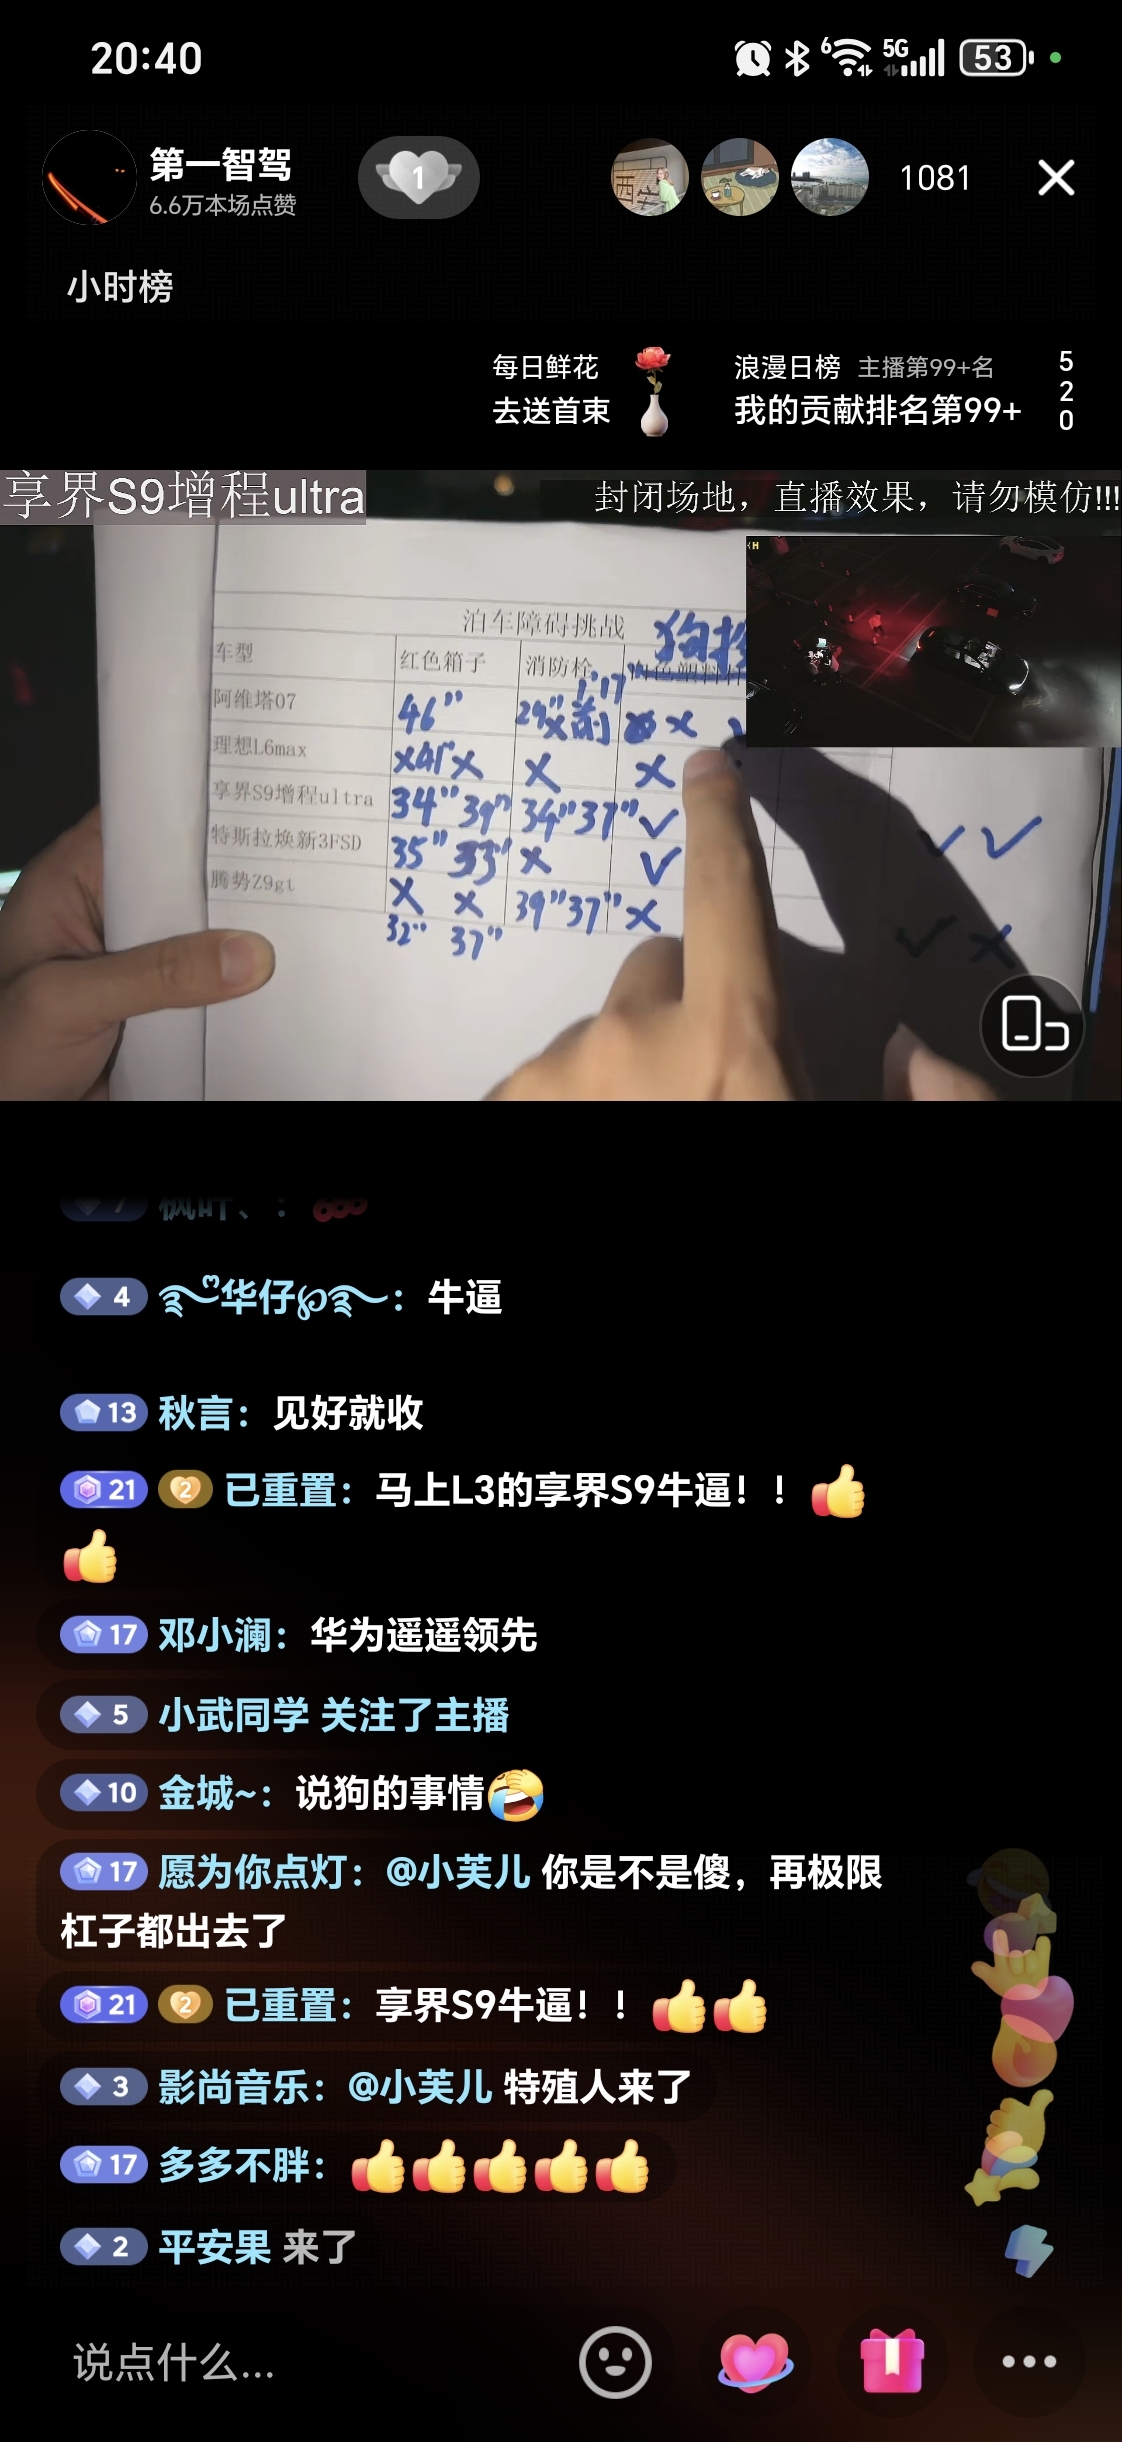 20:40
6
5G
53
第一智驾
6.6万本场点赞
1
1081
小时榜
每日鲜花
去送首束
浪漫日榜 主播第99+名
我的贡献排名第99+
5
2
0
享界S9增程ultra
封闭场地，直播效果，请勿模仿!!!
泊车障碍挑战
车型 红色箱子 消防栓
阿维塔07 46" 29" x 前 1'17 x
理想L6max x 41" x x x
享界S9增程ultra 34" 39" 34" 37" ✓ ✓ ✓
特斯拉焕新3FSD 35" 33" x ✓
腾势Z9gt x x 39" 37" x ✓ x
32" 37"
7 枫叶、：
4 华仔：牛逼
13 秋言：见好就收
21 2 已重置：马上L3的享界S9牛逼！！👍
👍
17 邓小澜：华为遥遥领先
5 小武同学 关注了主播
10 金城~：说狗的事情
17 愿为你点灯：@小芙儿 你是不是傻，再极限
杠子都出去了
21 2 已重置：享界S9牛逼！！👍👍
3 影尚音乐：@小芙儿 特殖人来了
17 多多不胖：👍👍👍👍👍
2 平安果 来了
说点什么...